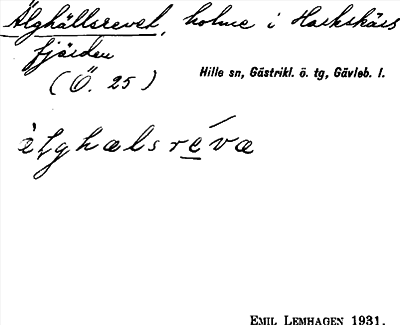 Älghällsrevet, holme i Harkskärs
fjärden
(Ö. 25)
Hille sn, Gästrikl. ö. tg, Gävleb. l.
EMIL LEMHAGEN 1931.